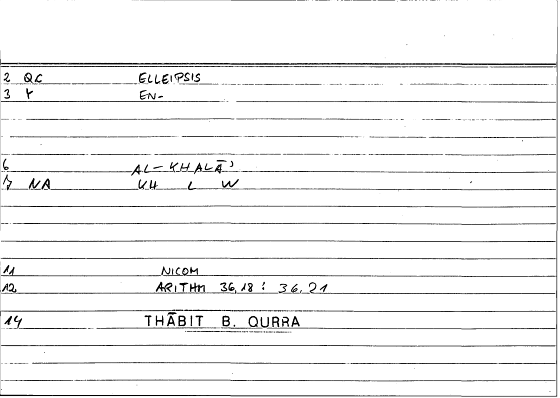 2 QC ELLEIPSIS
3 Y EN-
6 AL-KHALĀʾ
7 NA KH L W
11 NICOM
12 ARITHM 36,18 : 36.21
14 THĀBIT B. QURRA